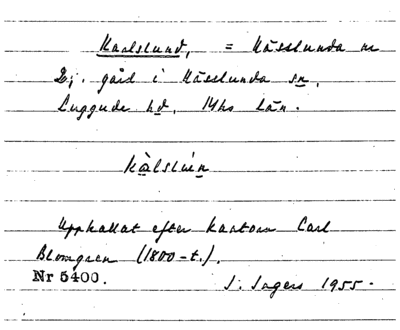 Karlslund, = Kässlunda nr
2; gård i Kässlunda sn,
Luggude hd, Mhs län.
Upphallat efter kantorn Carl
Blomgren (1800-t.).
Nr 5400. J. Ingers 1955.